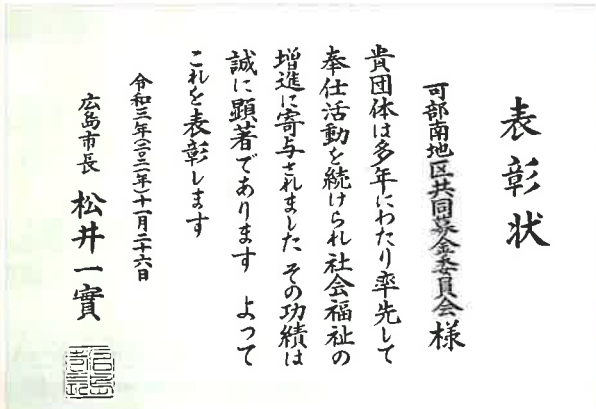 表彰状
可部南地区共同募金委員会様
貴団体は多年にわたり率先して
奉仕活動を続けられ社会福祉の
増進に寄与されました その功績は
誠に顕著であります よって
これを表彰します
令和三年(二〇二一年)十一月二十六日
広島市長 松井一實